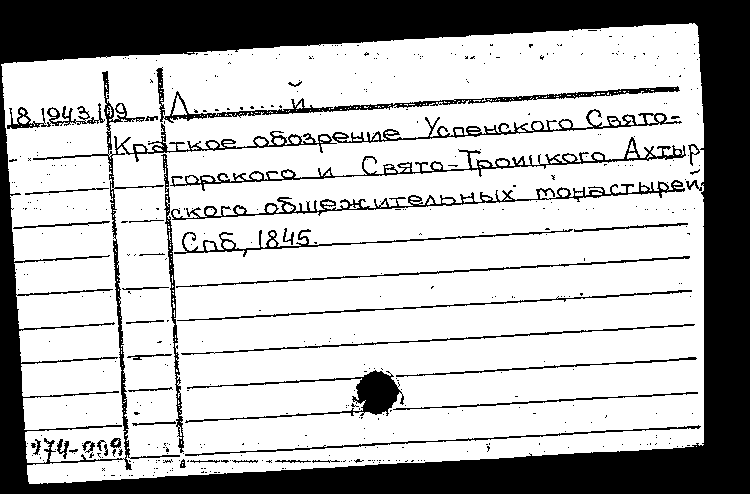 18.1943.109 Л..........й.
Краткое обозрение Успенского Свято-
горского и Свято-Троицкого Ахтыр-
ского общежительных монастырей.
Спб, 1845.
974-998